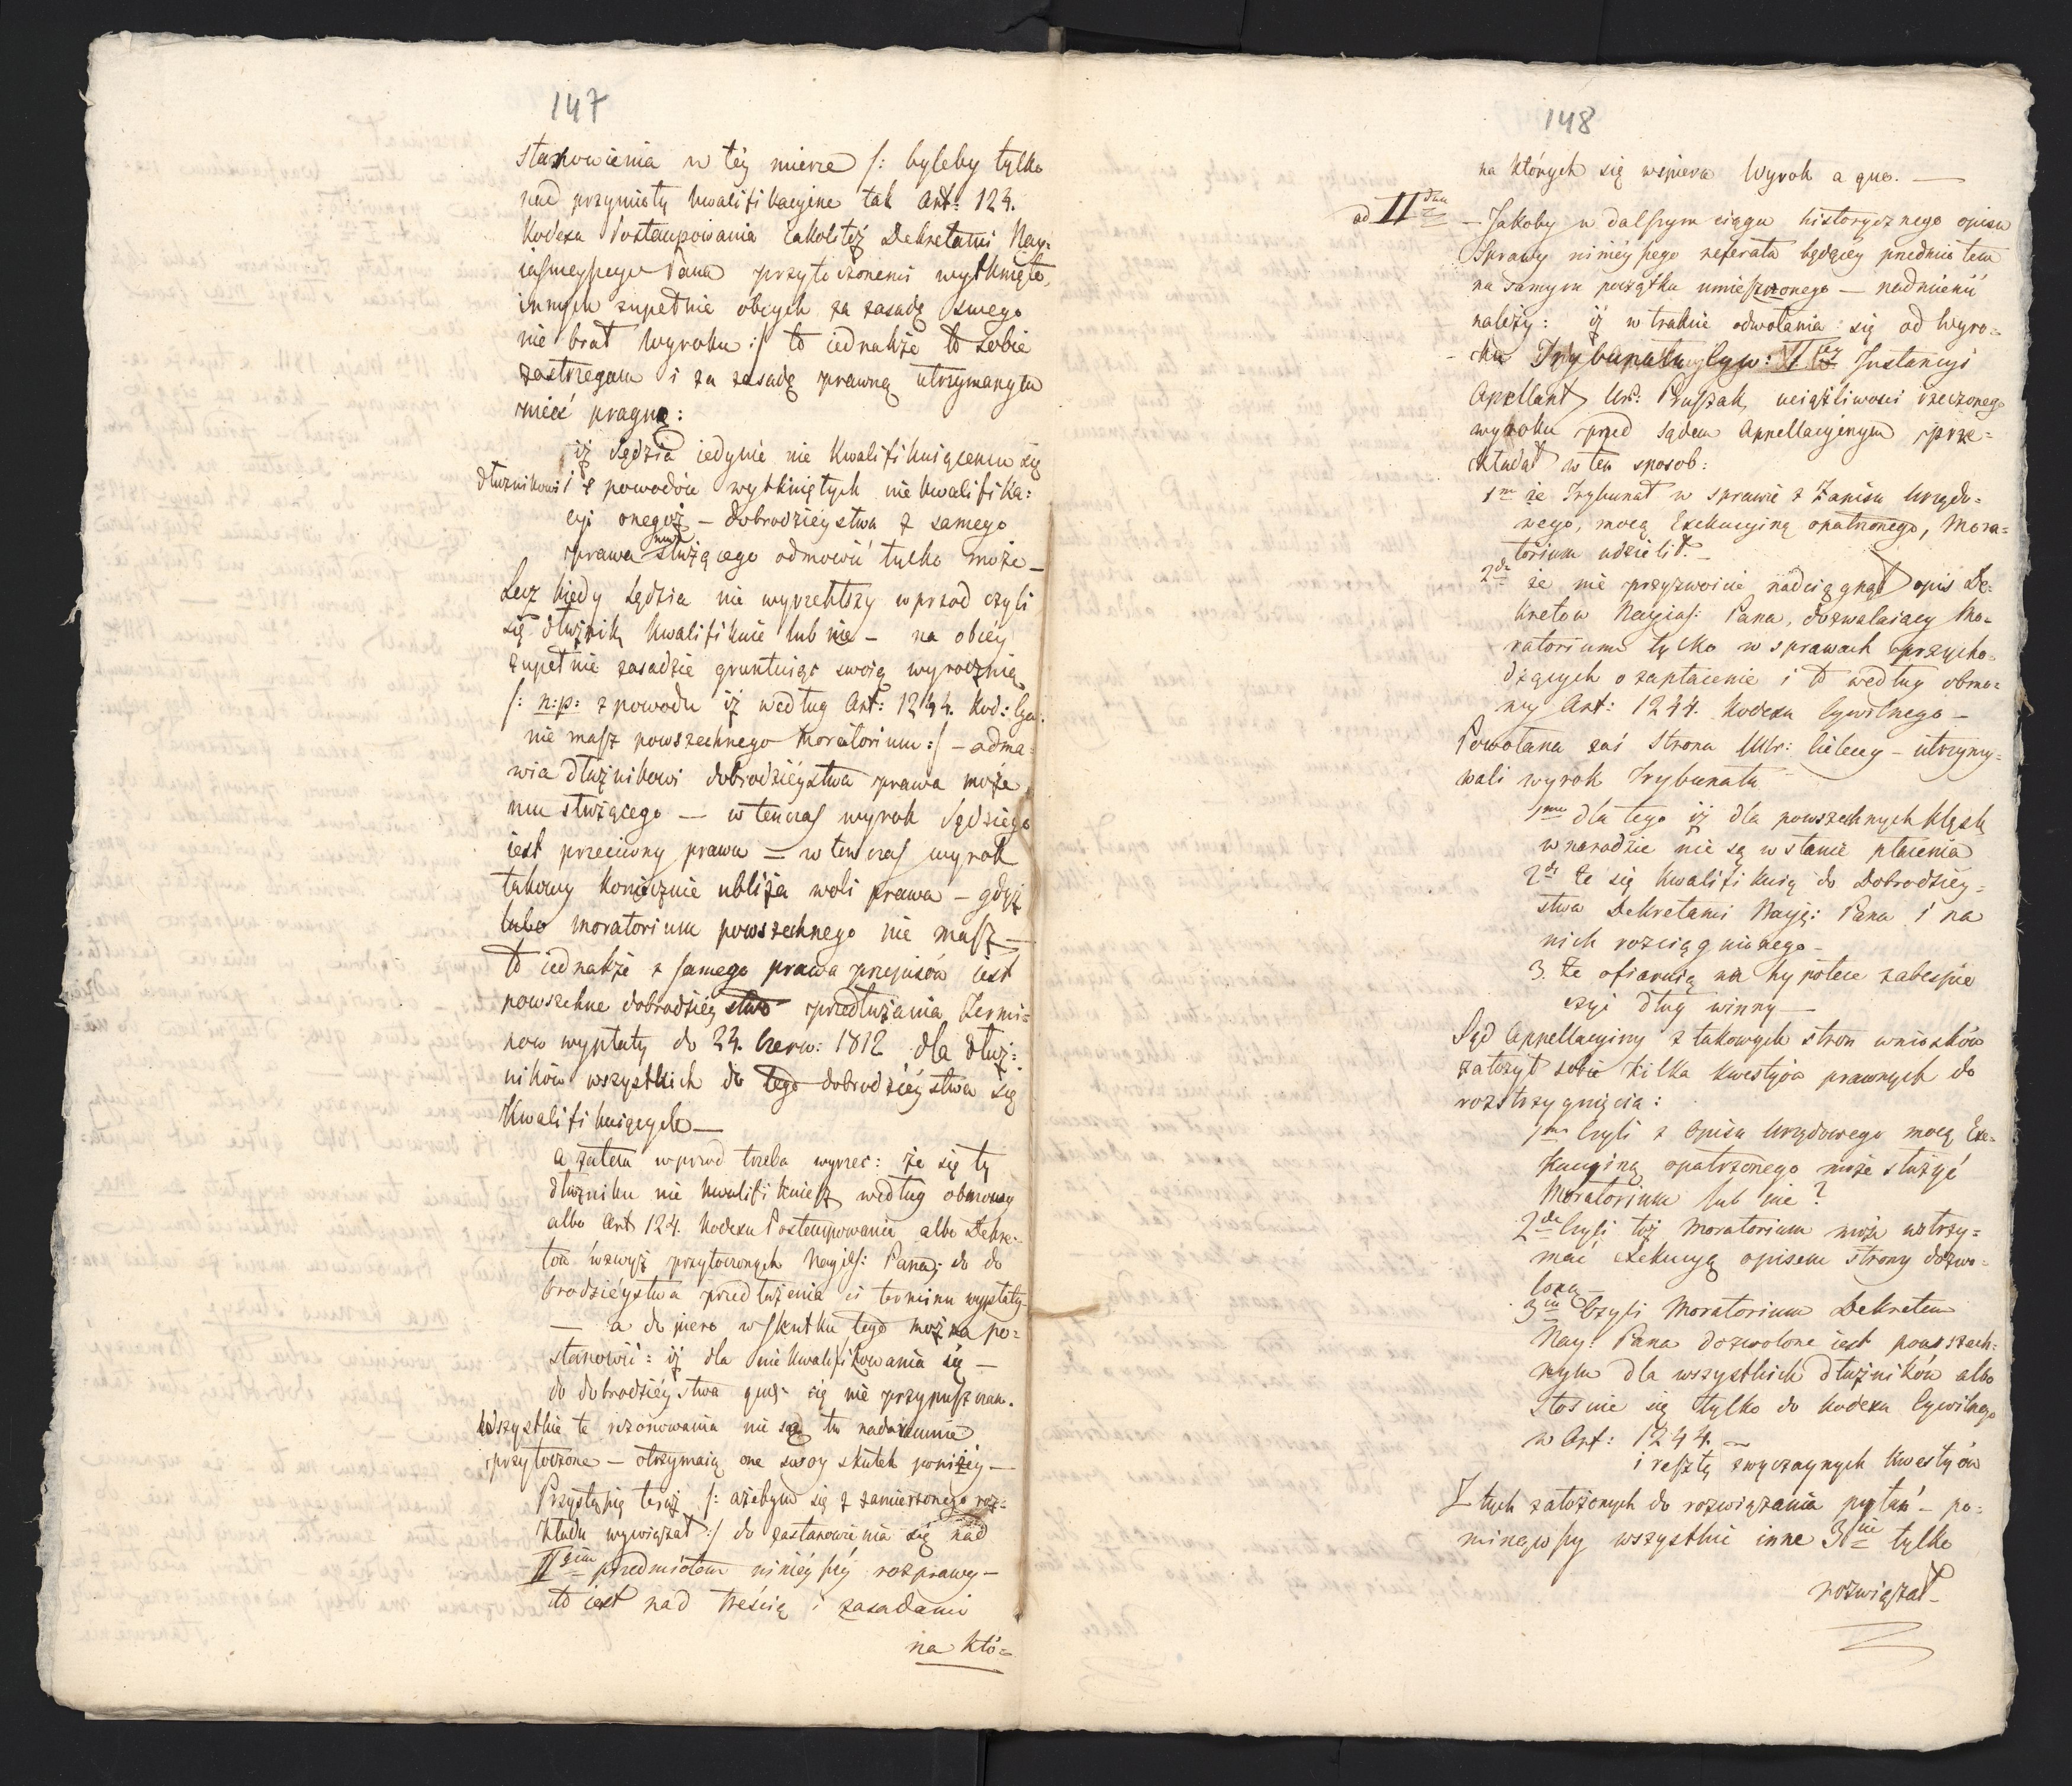 147
stanowienia w téy mierze /: byleby tylko
nad przymioty kwalifikacyine tak Art: 124.
Kodexu Postempowania iakoliteż Dekretami Nay-
iaśnieyszego Pana przytoczonemi wytknięte,
innych zupełnie obcych za zasadę swego
nie brał Wyroku :/ to iednakże to sobie
zastrzegam i za zasadę prawną utrzymanym
mieć pragnę:
iż Sędzia iedynie nie kwalifikuiącemu się
dłużnikowi z powodów wytkniętych nie kwalifika:
cyi onegoż – dobrodzieystwa z samego
prawa mu służącego odmowić tylko może –
Lecz kiedy Sędzia nie wyrzekłszy wprzod czyli
się dłużnik kwalifikuie lub nie – na obcéy
zupełnie zasadzie gruntuiąc swoią wyrocznią
/: n:p: z powodu iż według Art: 1244. Kod: Cyw:
nie masz powszechnego Moratorium :/ – odma-
wia dłużnikowi dobrodziéystwa prawa może
mu służącego — w tenczas wyrok Sędziego
iest przeciwny prawu – w tenczas wyrok
takowy koniecznie ubliża woli prawa – gdyż
lubo moratorium powszechnego nie masz —
to iednakże z samego prawa przepisów iest
powszechne dobrodzieystwo przedłużania termi-
now wypłaty do 24. Czerw: 1812 dla dłuż-
ników wszystkich do tego dobrodziéystwa się
kwalifikuiących —
a zatem wprzod trzeba wyrzec: że się ty
dłużniku nie kwalifikuiesz według obmowy
albo Art 124. Kodexu Postempowania albo Dekre-
tow wzwyż przytoczonych Nayias: Pana; do do
brodziéystwa przedłużenia ci terminu wypłaty –
— a dopiero w skutku tego można po-
stanowić: iż dla nie kwalifikowania się —
do dobrodziéystwa się nie przypuszczam.
Wszystkie te rezonowania nie są tu nadaremnie
przytoczone – otrzymaią one swoy skutek poniżéy —
Przystąpię teraz /: ażebym się z zamierzonego roz-
kładu wywiązał :/ do zastanowienia się nad
II gim przedmiotem niniéyszéy rozprawy –
to iest nad treścią i zasadami
na któ=
148
na których się wspiera Wyrok a quo. —
ad II dum – Jakoby w dalszym ciągu historycznego opisu
Sprawy niniéyszego referatu będącéy przedmiotem
na samym początku umieszczonego — nadmienić
należy: iż w trakcie odwołania się od Wyro-
ku Trybunału Cyw: I Instancyi
Apellant Ur: Pruszak uciążliwosci rzeczonego
wyroku przed Sądem Appellacyinym prze-
kładał w ten sposob:
1m że Trybunał w sprawie z Zapisu Urzędo-
wego, mocą Exekucyiną opatrzonego, Mora-
torium udzielił. –
2do że nie przyzwoicie nadciągnął opis De-
kretow Nayias: Pana, dozwalaiący Mo-
ratorium tylko w sprawach przycho-
dzących o zapłacenie i to według obmo-
wy Art: 1244. Kodexu Cywilnego –
Powołana zaś Strona Ur: Cieleccy – utrzymy-
wali wyrok Trybunału
1mo dla tego iż dla powszechnych klęsk
w narodzie nie są w stanie płacenia
2do że się kwalifikuią do Dobrodziey-
stwa Dekretami Nayia: Pana i na
nich rozciągnionego –
3. że ofiaruią na hypotece zabespie
czyć dług winny —
Sąd Appellacyiny z takowych stron wniosków
założył sobie kilka kwestyów prawnych do
rozstrzygnięcia:
1mo Czyli z Opisu Urzędowego mocą Exe-
kucyiną opatrzonego może służyć
Moratorium lub nie?
2do Czyli toż Moratorium może wstrzy-
mać Exekucyą opisem strony dozwo-
loną –
3tio Czyli Moratorium Dekretem
Nay: Pana dozwolone iest powszech-
nym dla wszystkich dłużników albo
stosuie się tylko do Kodexu Cywilnego
w Art: 1244. —
i resztę zwyczaynych kwestyów
Z tych założonych do rozwiązania pytań – po-
minąwszy wszystkie inne 3cie tylko
rozwiązał –